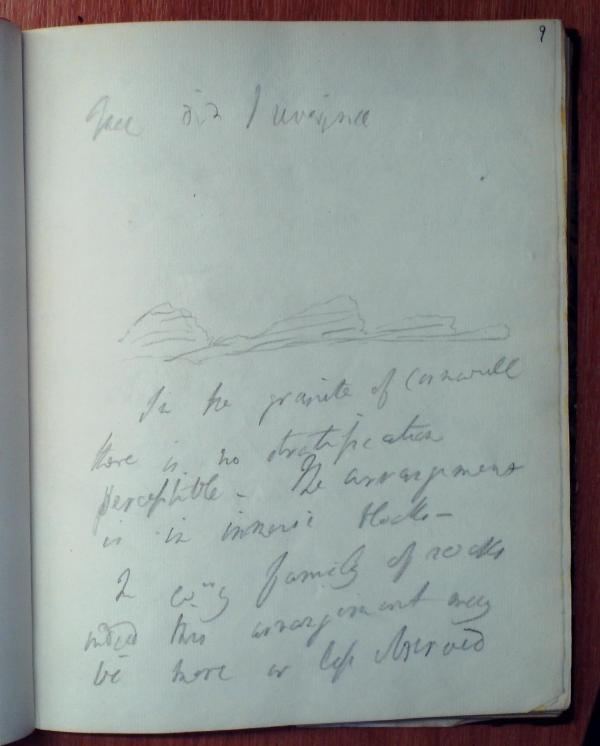 9
In the granite of Cornwall
there is no stratification
perceptible – The arrangement
is in immense blocks –
In family of rocks
indeed this arrangement may
be more or less observed